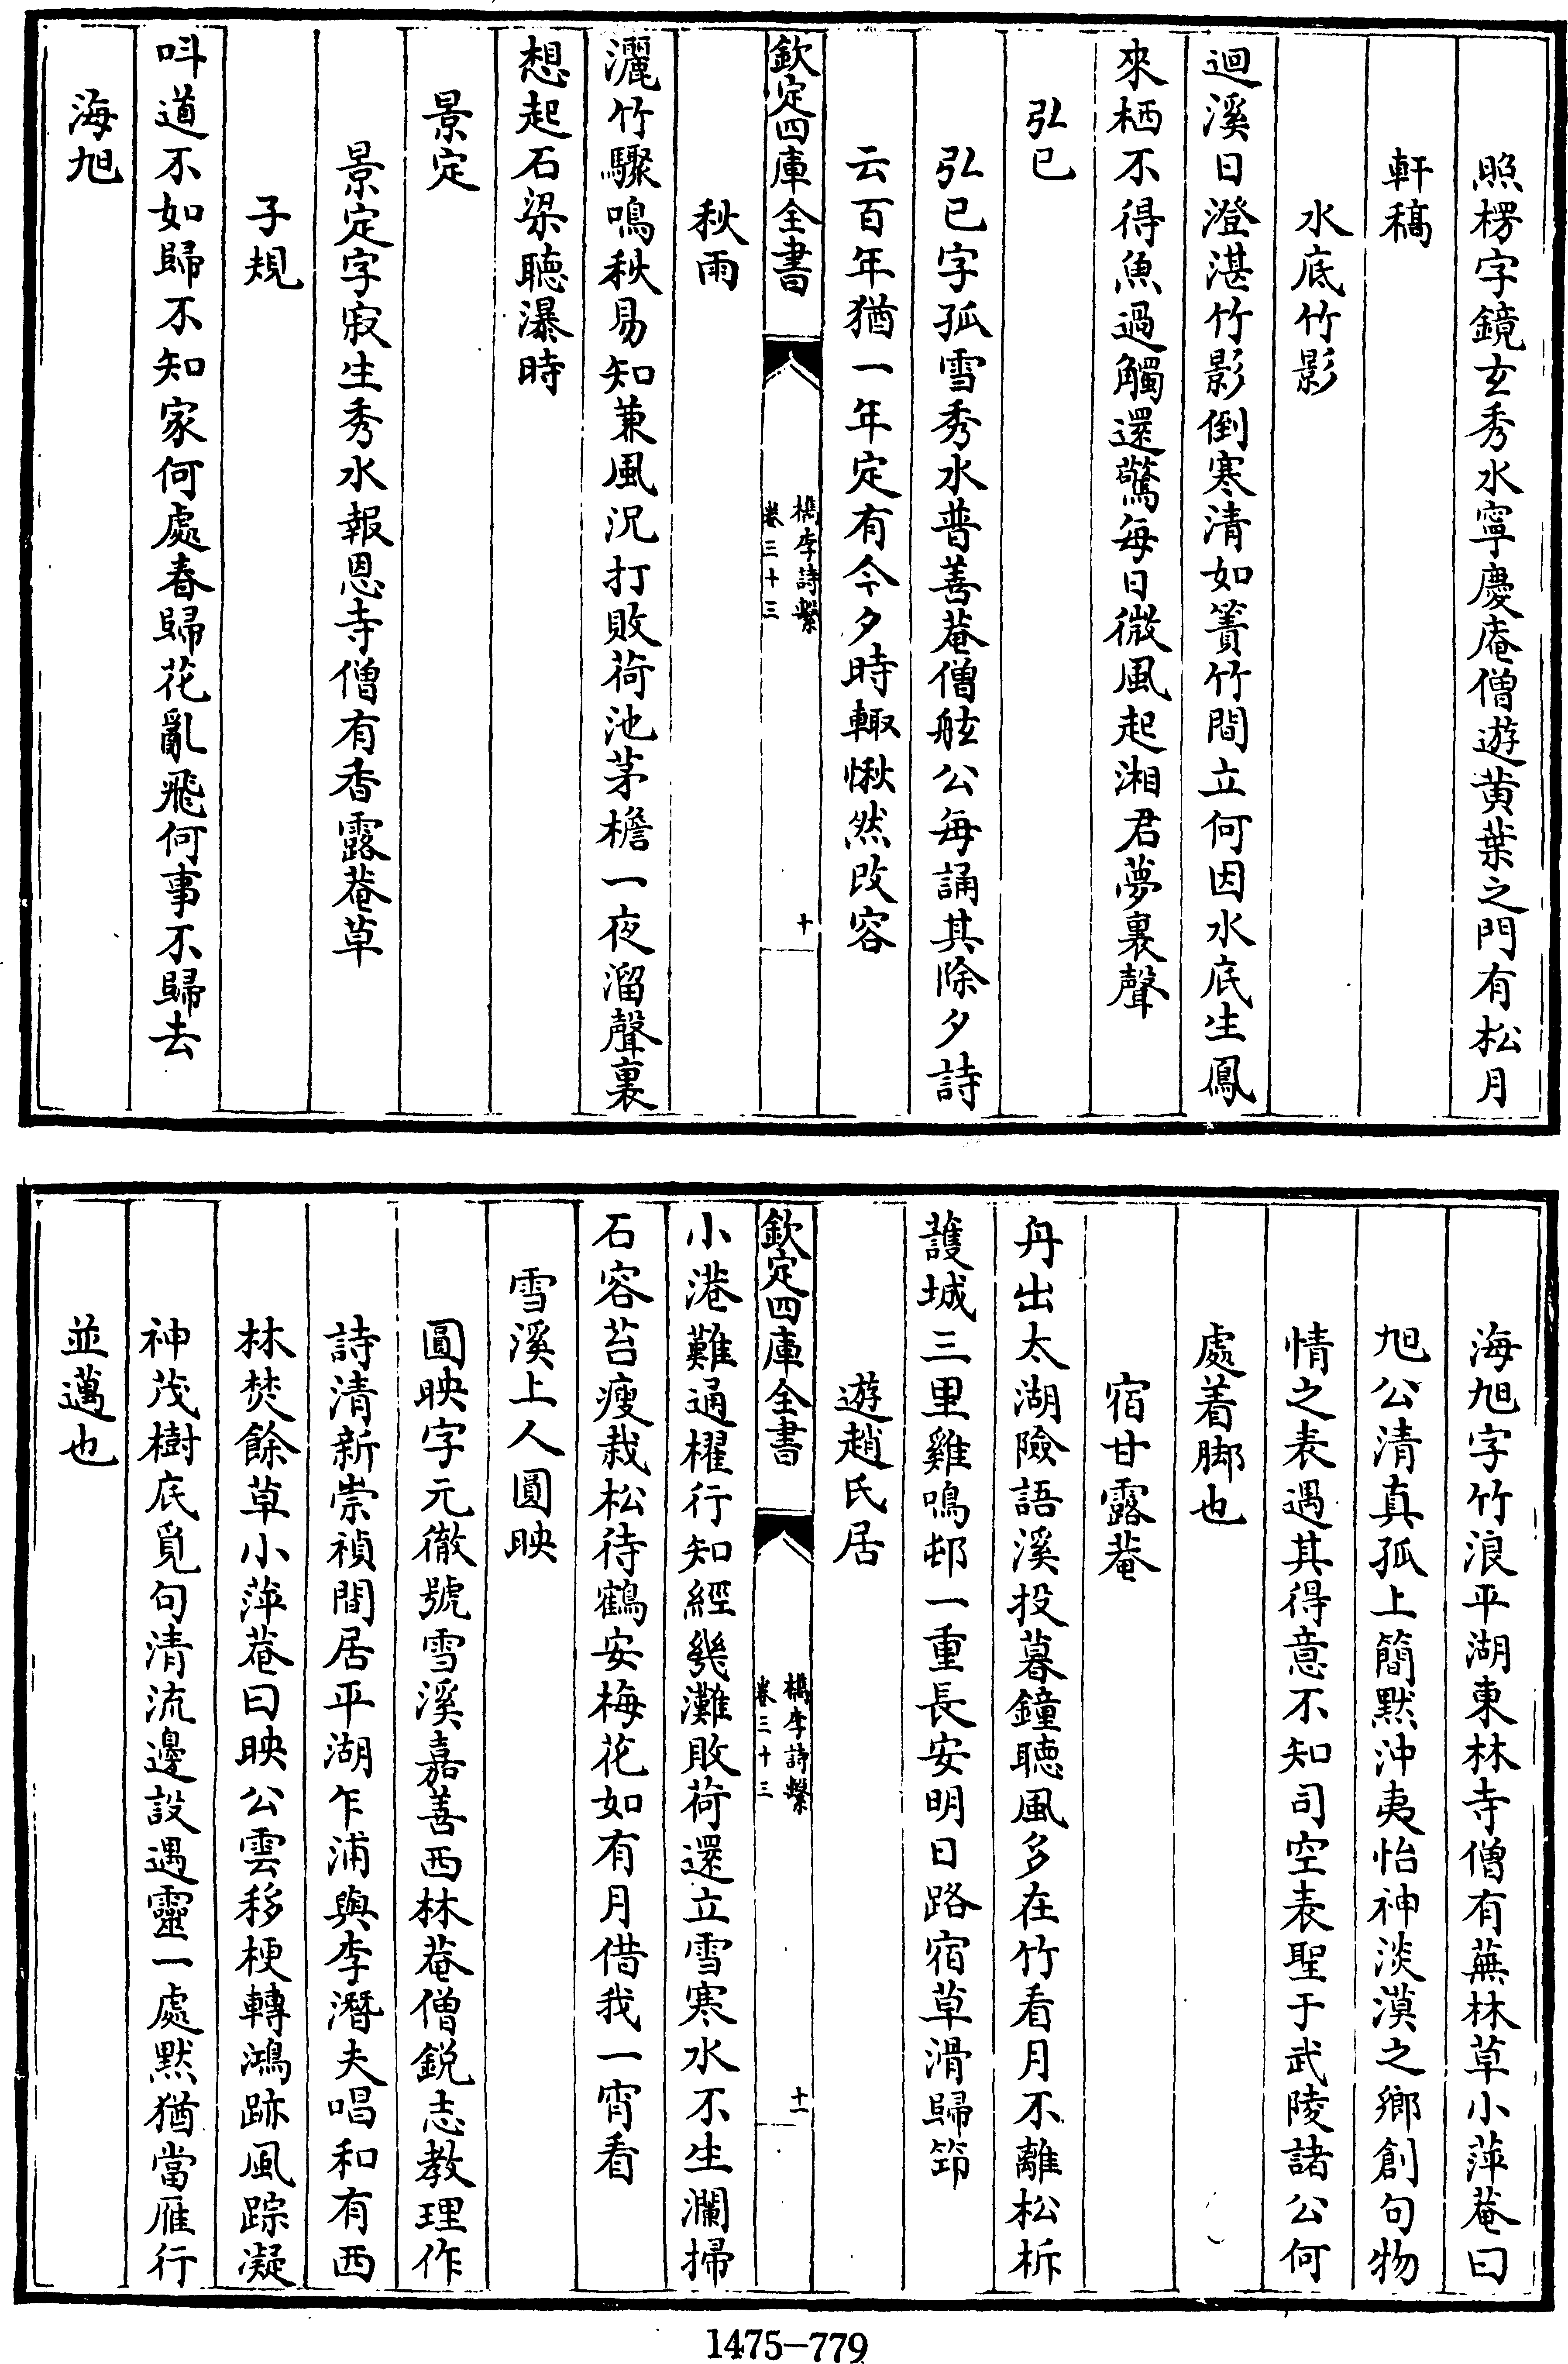 照楞字鏡玄秀水寧慶庵僧遊黄葉之門有松月
軒稿
水底竹影
迴溪日澄湛竹影倒寒清如簀竹間立何因水底生鳳
來栖不得魚過觸還驚每日微風起湘君夢裏聲
弘已
弘已字孤雪秀水普善菴僧舷公每誦其除夕詩
云百年猶一年定有今夕時輙愀然改容
欽定四庫全書
檇李詩繫
卷三十三
十
秋雨
灑竹驟鳴秋易知兼風況打敗荷池茅檐一夜溜聲裏
想起石梁聴瀑時
景定
景定字寂生秀水報恩寺僧有香露菴草
子規
呌道不如歸不知家何處春歸花亂飛何事不歸去
海旭
海旭字竹浪平湖東林寺僧有蕪林草小萍菴曰
旭公清真孤上簡默沖夷怡神淡漠之鄉創句物
情之表遇其得意不知司空表聖于武陵諸公何
處着脚也
宿甘露菴
舟出太湖險語溪投暮鐘聴風多在竹看月不離松柝
䕶城三里雞鳴邨一重長安明日路宿草滑歸笻
遊趙氏居
欽定四庫全書
檇李詩繫
卷三十三
十一
小港難通櫂行知經幾灘敗荷還立雪寒水不生瀾掃
石容苔瘦栽松待鶴安梅花如有月借我一宵看
雪溪上人圓映
圓映字元徹號雪溪嘉善西林菴僧鋭志教理作
詩清新崇禎間居平湖乍浦與李潛夫唱和有西
林焚餘草小萍菴曰映公雲移梗轉鴻跡風踪凝
神茂樹底覓句清流邊設遇靈一處默猶當雁行
並邁也
1475-779